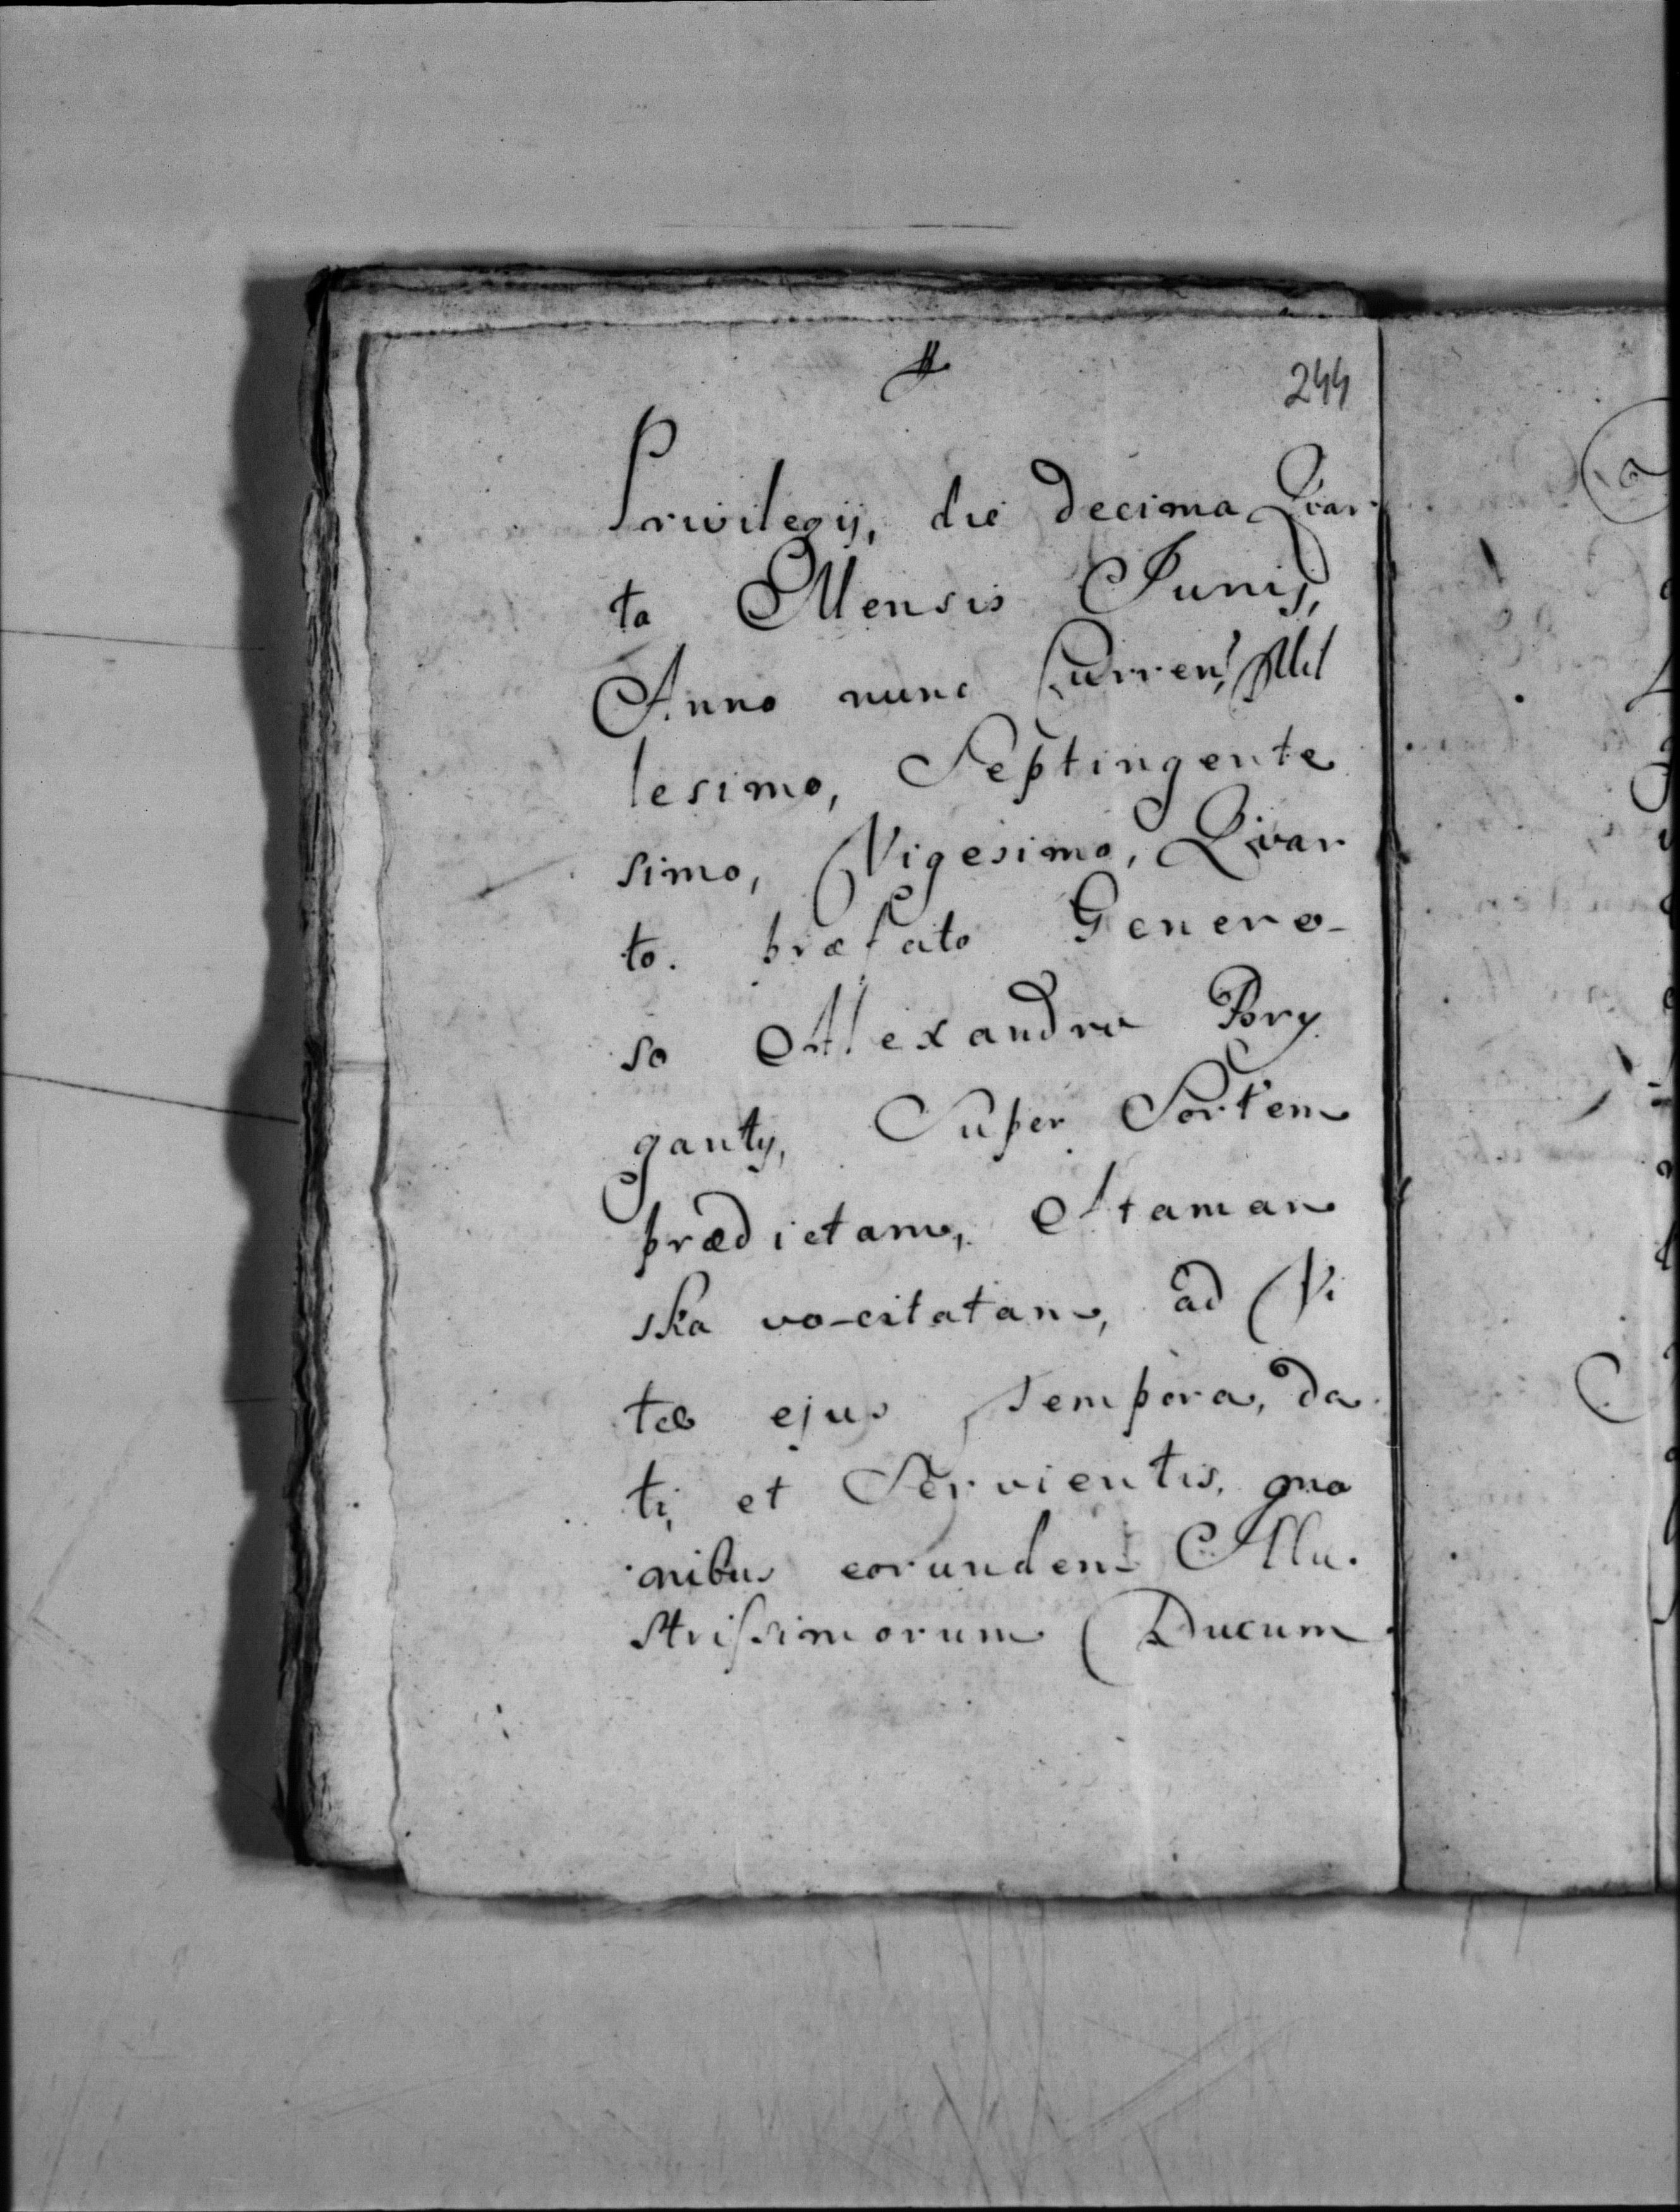 244
Privilegij, die decima Qvar
ta Mensis Junij,
Anno nunc Curren, Mil
lesimo, Septingente
simo, Vigesimo, Qvar
to. præfato Genero-
so Alexandro Bry
ganty, Super Sortem
prædictam, Ataman
ska vo-citatam, ad Vi
tæ ejus tempora, da
ti, et Servientis,
nibus eorundem Illu.
strissimorum Ducum